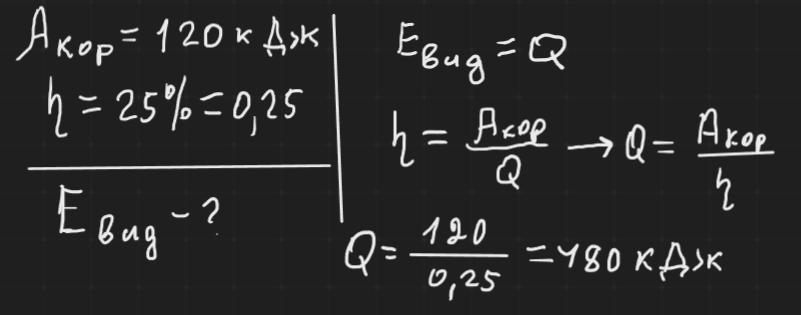 Aкор = 120 кДж
η = 25% = 0,25
Eвид - ?
Eвид = Q
η = Aкор/Q → Q = Aкор/η
Q = 120/0,25 = 480 кДж